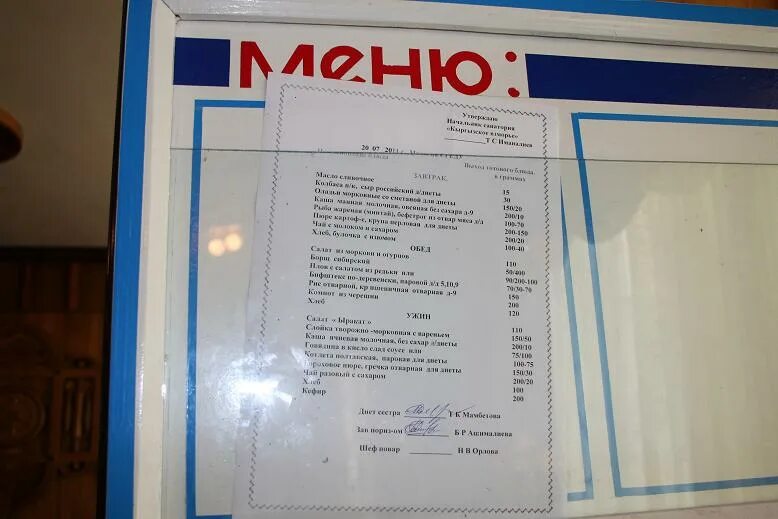 меню:
Утверждаю
Начальник санатория
«Кыргызское взморье»
Т С Иманалиев
20 07 2011 г.
блюда
Выход готового блюда.
в граммах
ЗАВТРАК.
Масло сливочное 15
Колбаса п/к, сыр российский д/диеты 30
Оладьи морковные со сметаной для диеты 150/20
Каша манная молочная, овсяная без сахара д-9 200/10
Рыба жареная (минтай), бефстрог из отвар мяса д/д 100-70
Пюре картоф-е, крупа перловая для диеты 200-150
Чай с молоком и сахаром 200/20
Хлеб, булочка с изюмом 100-40
ОБЕД
Салат из моркови и огурцов 110
Борщ сибирский 50/400
Плов с салатом из редьки или 90/200-100
Бифштекс по-деревенски, паровой д/д 5,10,9 70/30-70
Рис отварной, кр пшеничная отварная д-9 150
Компот из черешни 200
Хлеб 120
УЖИН
Салат « Ыракат » 110
Слойка творожно -морковная с вареньем 150/50
Каша ячневая молочная, без сахар д/диеты 200/10
Говядина в кисло слад соусе или 75/100
Котлета полтавская, паровая для диеты 100-75
Гороховое пюре, гречка отварная для диеты 150/30
Чай разовый с сахаром 200/20
Хлеб 100
Кефир 200
Диет сестра Т К Мамбетова
Зав произ-ом Б Р Ашималиева
Шеф повар Н В Орлова